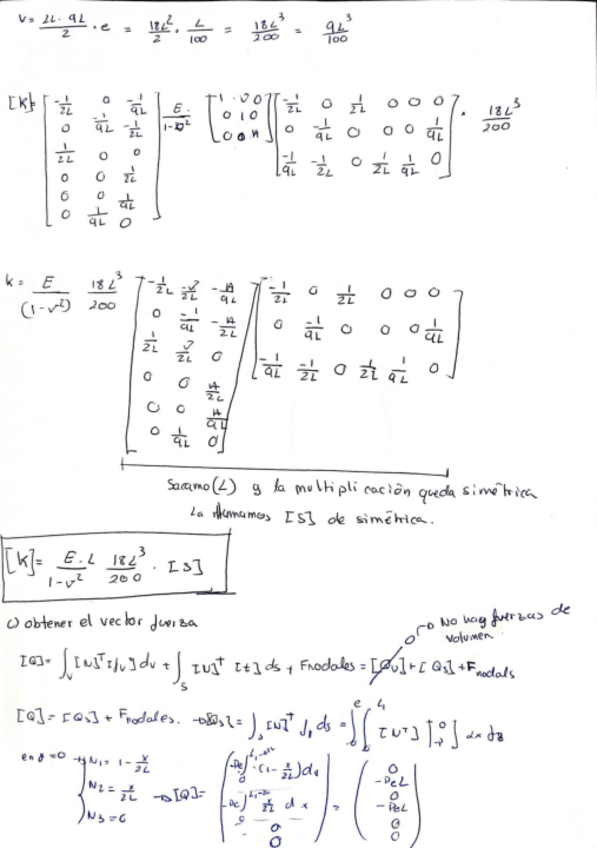 V = 2L · 9L / 2 · e = 18L² / 2 · L / 100 = 18L³ / 200 = 9L³ / 100
[K]= [ -1/2L 0 -1/9L ; 0 -1/9L -1/2L ; 1/2L 0 0 ; 0 0 1/2L ; 0 0 1/9L ; 0 1/9L 0 ] E / 1-ν² [ 1 ν 0 ; ν 1 0 ; 0 0 A ] [ -1/2L 0 1/2L 0 0 0 ; 0 -1/9L 0 0 0 1/9L ; -1/9L -1/2L 0 1/2L 1/9L 0 ] · 18L³ / 200
K = E / (1-ν²) 18L³ / 200 [ -1/2L -ν/2L -A/9L ; 0 -1/9L -A/2L ; 1/2L ν/2L 0 ; 0 0 A/2L ; 0 0 A/9L ; 0 1/9L 0 ] [ -1/2L 0 1/2L 0 0 0 ; 0 -1/9L 0 0 0 1/9L ; -1/9L -1/2L 0 1/2L 1/9L 0 ]
Sacamo (L) y la multiplicación queda simétrica
La llamamos [S] de simétrica.
[K]= E·L / 1-ν² 18L³ / 200 · [S]
c) obtener el vector fuerza
No hay fuerzas de
volumen
[Q]= ∫v [N]ᵀ[fv] dv + ∫s [N]ᵀ [t] ds + Fnodales = [Qv] + [Qs] + Fnodals
[Q] = [Qs] + Fnodales. → [Qs] = ∫s [N]ᵀ ds = ∫∫ [Nᵀ] dx dz
en y=0 → N1 = 1 - x/2L
N2 = x/2L → [Q]=
N3 = 0
( 0 ; -PeL ; 0 ; -PeL ; 0 ; 0 )